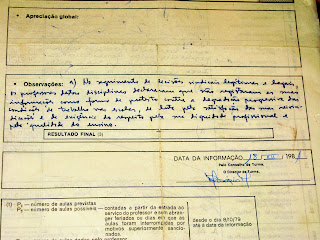 • Apreciação global:
• Observações: a) No seguimento de decisões sindicais legítimas e legais,
os professores destas disciplinas declararam que não registaram as suas
informações como forma de protesto contra a degradação progressiva das
condições de trabalho nas escolas, de luta pela satisfação das suas reivin-
dicações e de exigência do respeito pela sua dignidade profissional e
pela qualidade do ensino.
RESULTADO FINAL (3)
DATA DA INFORMAÇÃO 13 / XII / 198
Pelo Conselho de Turma,
O Director de Turma,
(1) P₁ — número de aulas previstas
P₂ — número de aulas possíveis — contadas a partir da entrada ao
serviço do professor e sem abran-
ger feriados ou dias em que as
aulas foram interrompidas por
motivos superiormente sancio-
nados.
desde o dia 8/10/79
até a data da informação